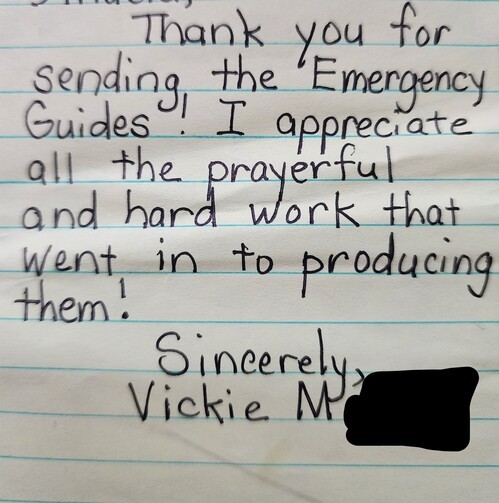 Thank you for
sending the "Emergency
Guides"! I appreciate
all the prayerful
and hard work that
went in to producing
them!
Sincerely,
Vickie M